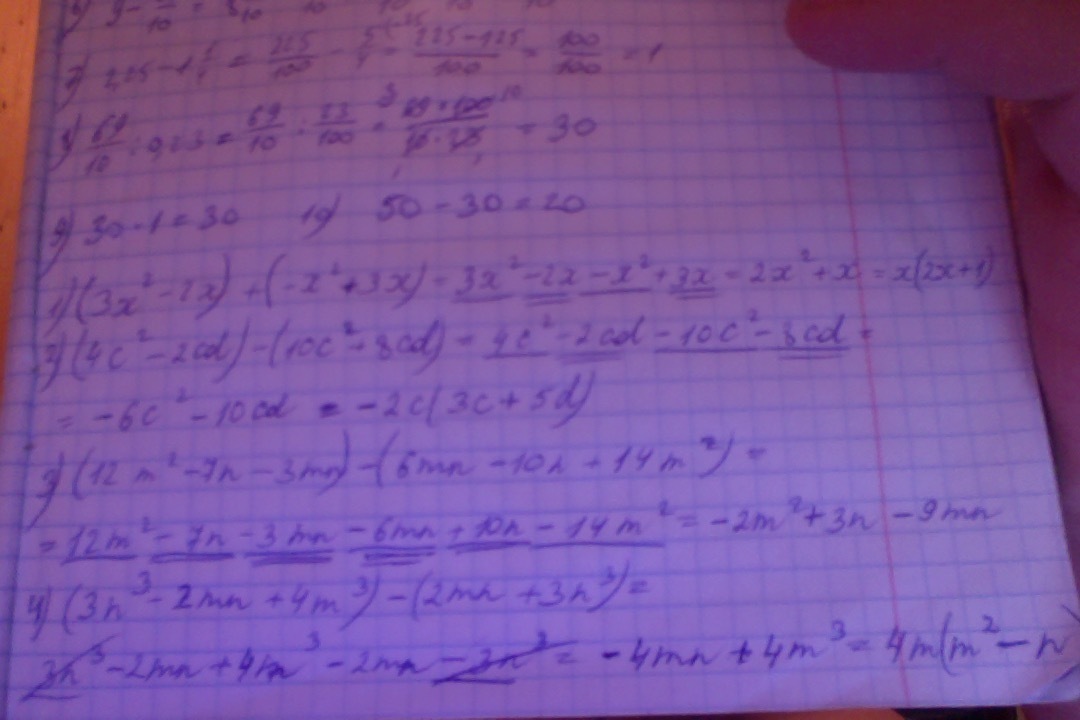 7) 2,25 - 1 1/4 = 225/100 - 5/4 = 225-125/100 = 100/100 = 1
8) 69/10 : 0,23 = 69/10 : 23/100 = 69·100/10·23 = 30
9) 30 · 1 = 30 10) 50 - 30 = 20
1) (3x² - 2x) + (-x² + 3x) = 3x² - 2x - x² + 3x = 2x² + x = x(2x+1)
2) (4c² - 2cd) - (10c² + 8cd) = 4c² - 2cd - 10c² - 8cd =
= -6c² - 10cd = -2c(3c + 5d)
3) (12m² - 7n - 3mn) - (6mn - 10n + 14m²) =
= 12m² - 7n - 3mn - 6mn + 10n - 14m² = -2m² + 3n - 9mn
4) (3n³ - 2mn + 4m³) - (2mn + 3n³) =
3n³ - 2mn + 4m³ - 2mn - 3n³ = -4mn + 4m³ = 4m(m² - n)